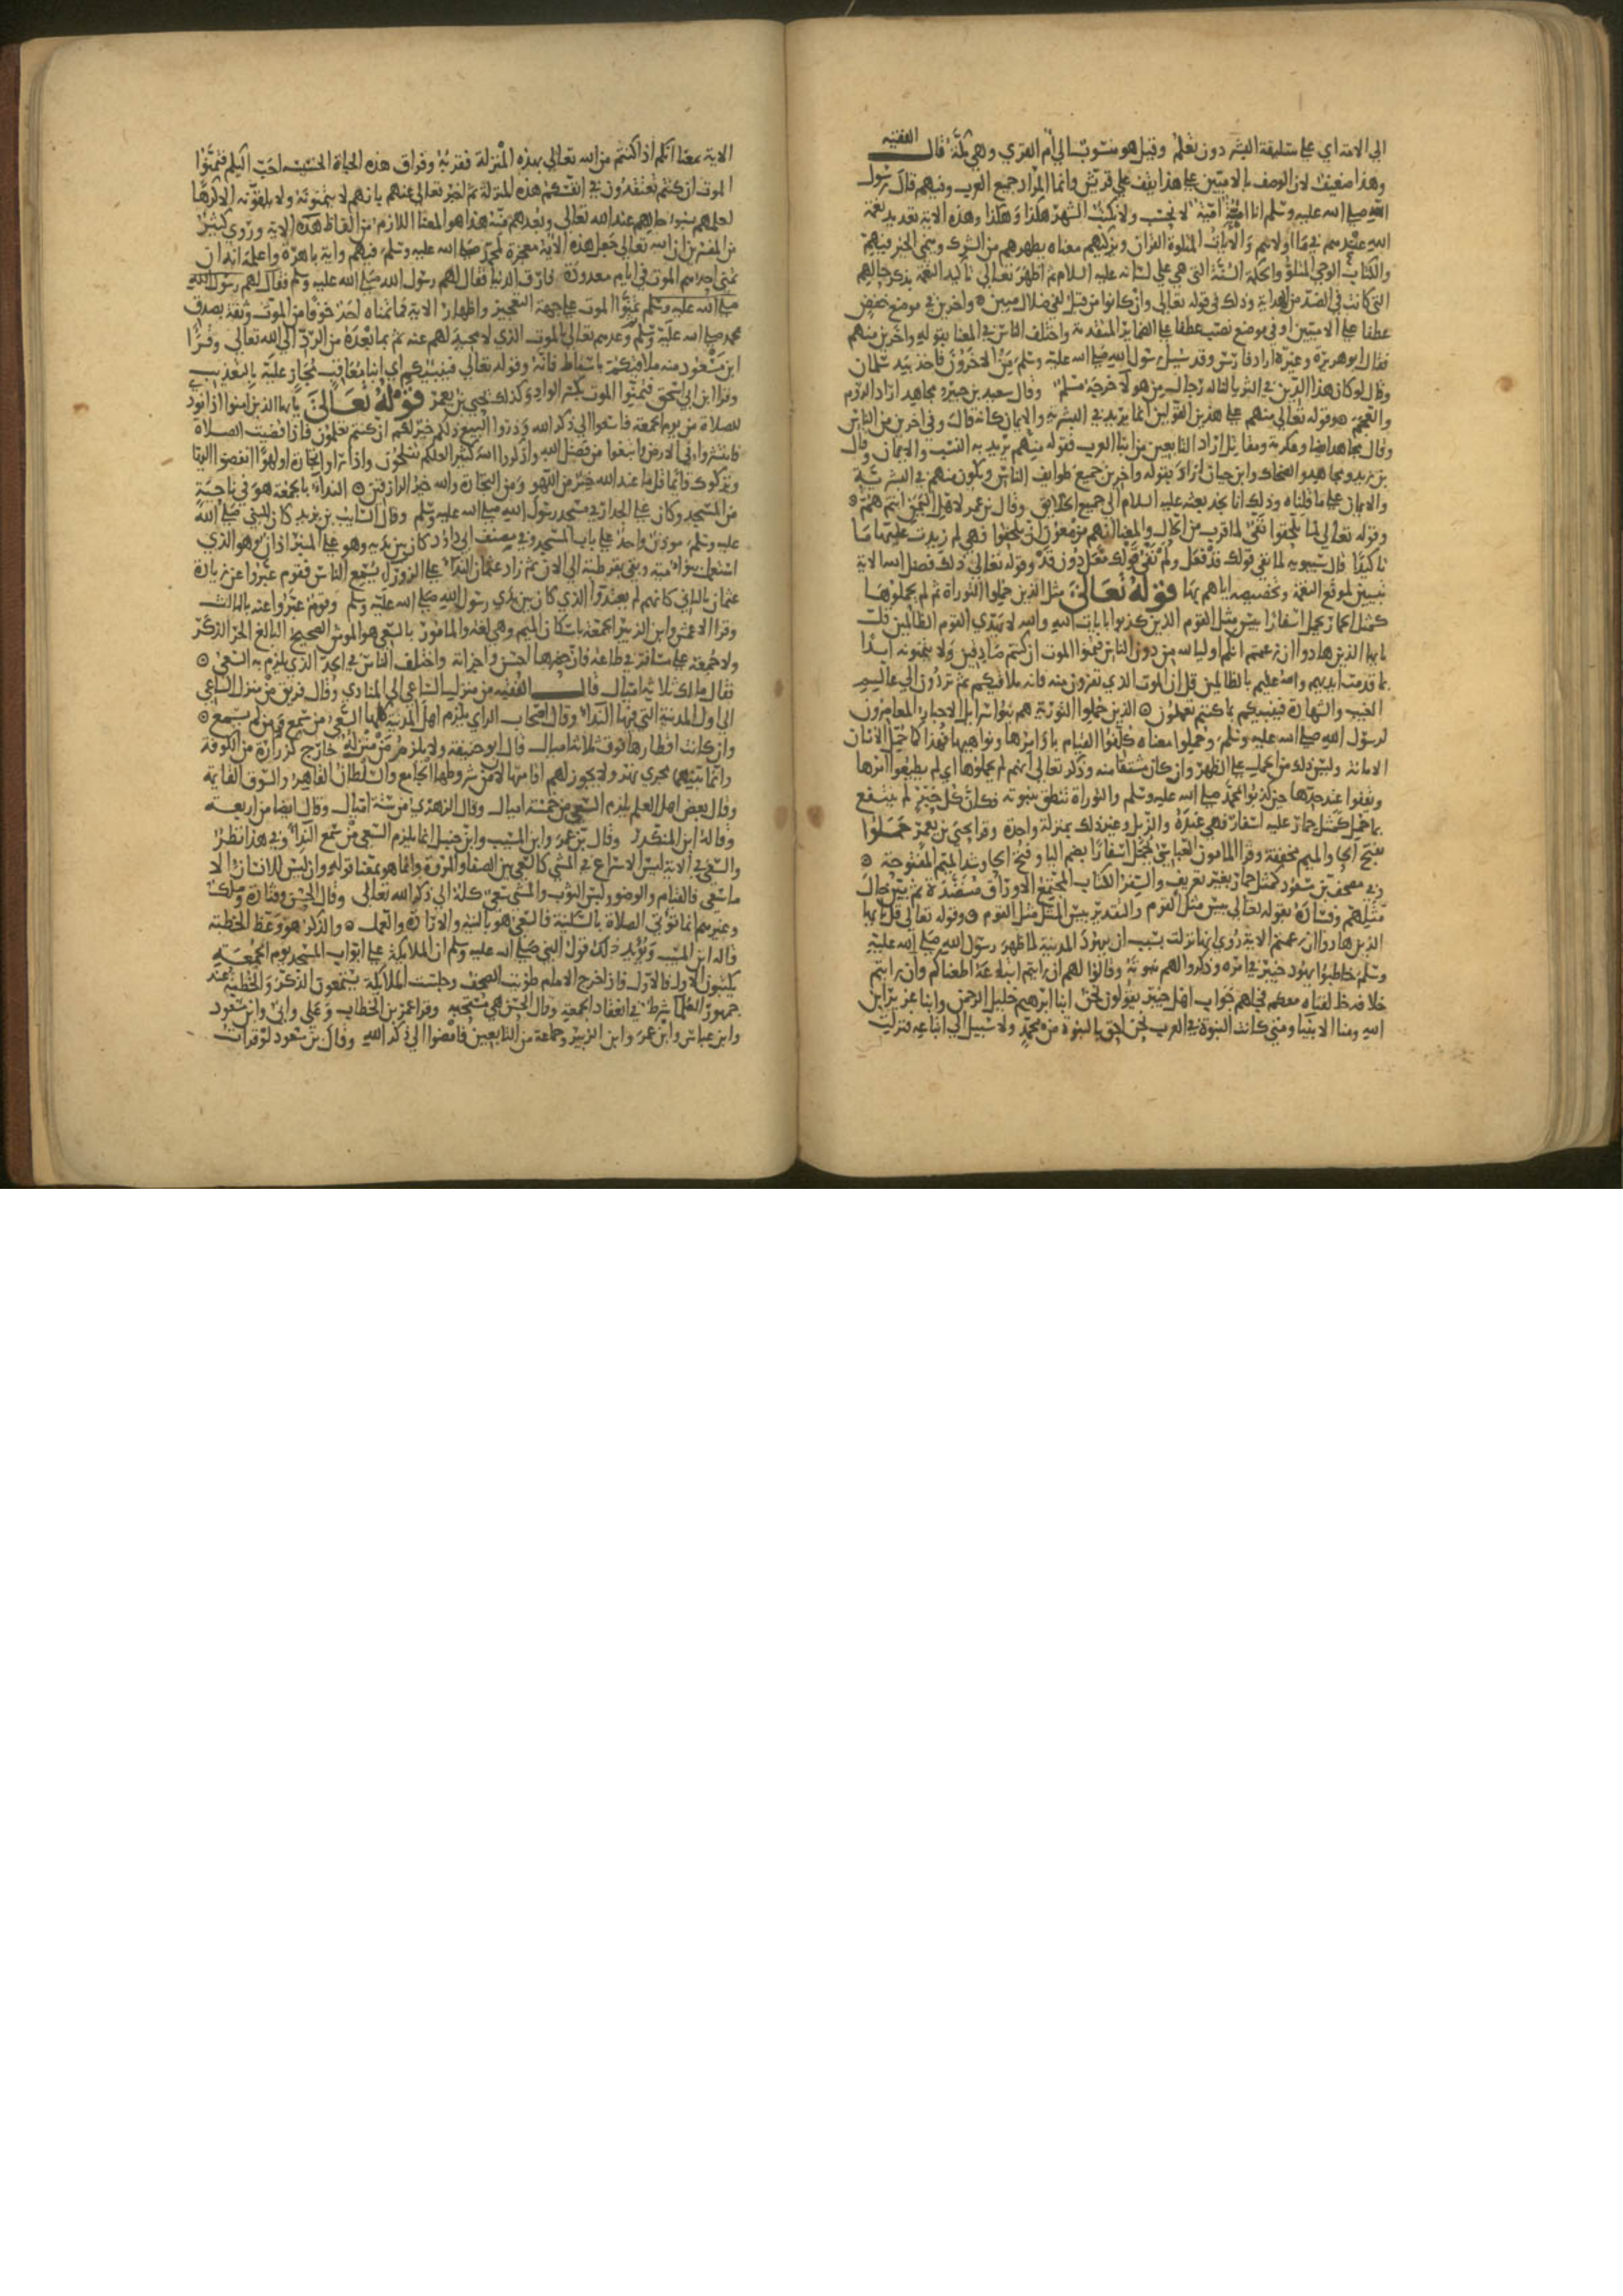 الي الامة اي على سليقة البشر دون تعلم وقيل هو منسوب الي ام القري وهي مكة قال الفقيه
وهذا ضعيف لان الوصف بالاميين على هذا يقف علي قريش وانما المراد جميع العرب وفيهم قال رسول
الله صلى الله عليه وسلم انا امة امية لا نحسب ولا نكتب الشهر هكذا وهكذا وهذه الاية تعديد نعمة
الله عندهم فيما اولاهم والايات المتلوة القران ويزكيهم معناه يطهرهم من الشرك وينمي الخير فيهم
والكتاب الوحي المتلو والحكمة السنة التي هي علي لسانه عليه السلام ثم اظهر تعالي تاكيد النعمة بذكر حالهم
التي كانت في الضد من الهداية وذلك في قوله تعالي وان كانوا من قبل لفي ضلال مبين واخرين في موضع خفض
عطفا على الاميين او في موضع نصب عطفا على الضماير المتقدمة واختلف الناس في المعنا بقوله واخرين منهم
فقال ابو هريرة وغيره اراد فارس وقد سيل رسول الله صلى الله عليه وسلم من الاخرون فاخذ بيد سلمان
وقال لو كان هذا الدين في الثريا لناله رجال من هولا خرجه مسلم وقال سعيد بن جبير ومجاهد اراد الروم
والعجم فقوله تعالي منهم على هذين القولين انما يريد في البشرية والايمان كانه قال وفي اخرين من الناس
وقال مجاهد ايضا وعكرمة ومقاتل اراد التابعين من ابنا العرب فقوله منهم يريد به النسب والايمان وقال
بن زيد ومجاهد والضحاك وابن حيان اراد بقوله واخرين جميع طوايف الناس ويكون منهم في البشرية
والايمان على ما قلناه وذلك انا نجد بعثه عليه السلام الي جميع الخلايق وقال بن عمر لاهل اليمن انتم هم
وقوله تعالي لما يلحقوا نفي لما قرب من الحال والمعنا انهم مزمعون ان يلحقوا فهي لم زيدت عليها ما
تاكيدا قال سيبويه لما نفي قولك قد فعل ولم نفي قولك فعل دون قد وقوله تعالي ذلك فضل الله الاية
تبيين لموقع النعمة وتخصيصه اياهم بها قوله تعالى مثل الذين حملوا التوراة ثم لم يحملوها
كمثل الحمار يحمل اسفارا بيس مثل القوم الذين كذبوا بايات الله والله لا يهدي القوم الظالمين قل
يايها الذين هادوا ان زعمتم انكم اوليا لله من دون الناس فتمنوا الموت ان كنتم صادقين ولا يتمنونه ابدا
بما قدمت ايديهم والله عليم بالظالمين قل ان الموت الذي تفرون منه فانه ملاقيكم ثم تردون الي عالم
الغيب والشهادة فينبيكم بما كنتم تعملون الذين حملوا التورية هم بنوا اسرايل الاحبار المعاصرون
لرسول الله صلى الله عليه وسلم وحملوا معناه كلفوا القيام باوامرها ونواهيها فهذا كما حمل الانسان
الامانة وليس ذلك من الحمل على الظهر وان كان مشتقا منه وذكر تعالي انهم لم يحملوها اي لم يطيعوا امرها
ويقفوا عند حدها حين كذبوا بمحمد صلى الله عليه وسلم والتوراة تنطق بنبوته فكان كل حبر لم ينتفع
بما حمل كمثل حمار عليه اسفار فهي عنده والزبل وغير ذلك بمنزلة واحدة وقرا يحيي بن يعمر حملوا
بفتح الحا والميم مخففة وقرا المامون العباسي يحمل اسفارا بضم اليا وفتح الحا وشد الميم المفتوحة
وفي مصحف بن مسعود كمثل حمار بغير تعريف والسفر الكتاب المجتمع الاوراق منضدة ثم بين حال
مثلهم وفساده بقوله تعالي بيس مثل القوم والتقدير بيس المثل مثل القوم وقوله تعالي قل يايها
الذين هادوا ان زعمتم الاية روي انها نزلت بسبب ان يهود المدينة لما ظهر رسول الله صلى الله عليه
وسلم خاطبوا يهود خيبر في امره وذكروا لهم نبوته وقالوا لهم ان رايتم اتباعه اطعناكم وان رايتم
خلافه خالفناه معكم فجاهم جواب اهل خيبر يقولون نحن ابنا ابرهيم خليل الرحمن وابنا عزير ابن
الله ومنا الانبيا ومتي كانت النبوة في العرب نحن احق بالنبوة من محمد ولا سبيل الي اتباعه فنزلت
الاية بمعنا انكم اذا كنتم من الله تعالي بهذه المنزلة فقربه وفراق هذه الحياة الخسيسة احب اليكم فتمنوا
الموت ان كنتم تعتقدون في انفسكم هذه المنزلة ثم اخبر تعالي عنهم بانهم لا يتمنونه ولا يلقونه الا كرها
لعلمهم بسوا حالهم عند الله تعالي وبعدهم منه هذا هو المعنا اللازم من الفاظ هذه الاية وروي كثير
من المفسرين ان الله تعالي جعل هذه الاية معجزة لمحمد صلى الله عليه وسلم فيهم واية باهرة واعلمه انه ان
تمني احدهم الموت في ايام معدودة فارق الدنيا فقال لهم رسول الله صلى الله عليه وسلم فقال لهم رسول الله
صلى الله عليه وسلم تمنوا الموت على جهة التعجيز واظهار الاية فما تمناه احد خوفا من الموت وثقة بصدق
محمد صلى الله عليه وسلم وعدهم تعالي بالموت الذي لا محيد لهم عنه ثم بما بعده من الرد الي الله تعالي وقرا
ابن مسعود منه ملاقيكم باسقاط فانه وقوله تعالي فينبيكم اي انبا معاقب مجاز عليه بالتعذيب
وقرا ابن ابي اسحق فتمنوا الموت بكسر الواو وكذلك يحيي بن يعمر قوله تعالى يايها الذين امنوا اذا نودي
للصلاة من يوم الجمعة فاسعوا الي ذكر الله وذروا البيع ذلكم خير لكم ان كنتم تعلمون فاذا قضيت الصلاة
فانتشروا في الارض وابتغوا من فضل الله واذكروا الله كثيرا لعلكم تفلحون واذا راوا تجارة او لهوا انفضوا اليها
وتركوك قايما قل ما عند الله خير من اللهو ومن التجارة والله خير الرازقين النداء بالجمعة هو في ناحية
من المسجد وكان على الجدار في مسجد رسول الله صلى الله عليه وسلم وقال السايب بن يزيد كان للنبي صلى الله
عليه وسلم موذن واحد على باب المسجد وفي مصنف ابي داود كان بين يديه وهو على المنبر اذان وهو الذي
استعمل بنوا امية وبقي بقرطبة الي الان ثم زاد عثمان النداء على الزورا ليسمع الناس فقوم عبروا عن زيادة
عثمان بالثاني كانهم لم يعتدوا الذي كان بين يدي رسول الله صلى الله عليه وسلم وقوم عبروا عنه بالثالث
وقرا الاعمش وابن الزبير الجمعة باسكان الميم وهي لغة والمامور بالسعي هو المومن الصحيح البالغ الحر الذكر
ولا جمعة على مسافر في طاعة فان حضرها احسن واجزاته واختلف الناس في الحد الذي يلزم به السعي
فقال مالك ثلاثة اميال قال الفقيه من منزل الساعي الي المنادي وقال فريق من منزل الساعي
الي اول المدينة التي فيها النداء وقال اصحاب الراي يلزم اهل المدينة كلها السعي من سمع ومن لم يسمع
وان كانت اقطارها فوق ثلاثة اميال قال ابو حنيفة ولا يلزم من منزله خارج كزرارة من الكوفة
وانما بينهما مجري نهر ولا يجوز لهم اقامتها لان من شروطها الجامع والسلطان القاهر والسوق القايمة
وقال بعض اهل العلم يلزم السعي من خمسة اميال وقال الزهري من ستة اميال وقال ايضا من اربعة
وقاله ابن المنكدر وقال بن عمر وابن المسيب وابن حنبل انما يلزم السعي من سمع النداء وفي هذا نظر
والسعي في الاية ليس الاسراع في المشي كالسعي بين الصفا والمروة وانما هو بمعنا قوله وان ليس للانسان الا
ما سعي فالقيام والوضو ولبس الثوب والمشي سعي كله الي ذكر الله تعالي وقال الحسن وقتادة ومالك
وغيرهم انما توتي الصلاة بالسكينة فالسعي هو بالنية والارادة والعمل والذكر هو وعظ الخطبة
قاله ابن المسيب ويؤيد ذلك قول النبي صلى الله عليه وسلم ان الملايكة على ابواب المسجد يوم الجمعة
يكتبون الاول فالاول فاذا خرج الامام طويت الصحف وجلست الملايكة يستمعون الذكر والخطبة عند
جمهور العلماء شرط في انعقاد الجمعة وقال الحسن هي مستحبة وقرا عمر بن الخطاب وعلي وابي وابن مسعود
وابن عباس وابن عمر وابن الزبير وجماعة من التابعين فامضوا الي ذكر الله وقال بن مسعود لو قرات